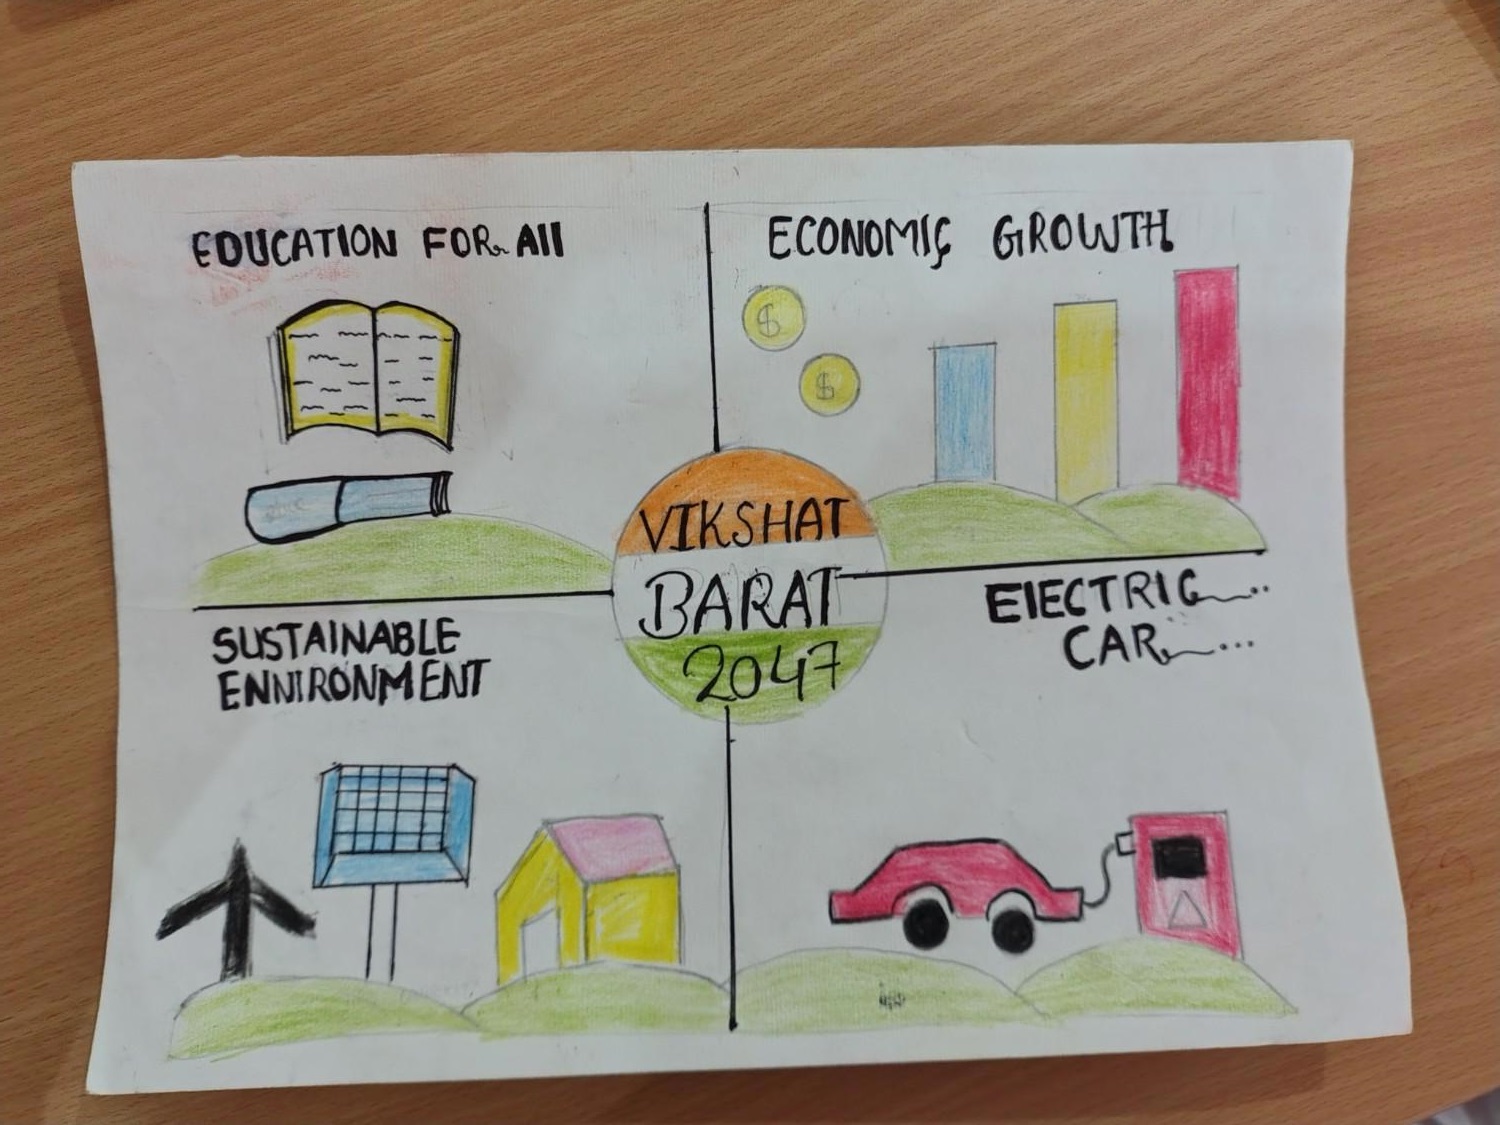 EDUCATION FOR All
ECONOMIC GROWTH
$
$
VIKSHAT
BARAT
2047
SUSTAINABLE
ENNIRONMENT
ElECTRIC....
CAR....